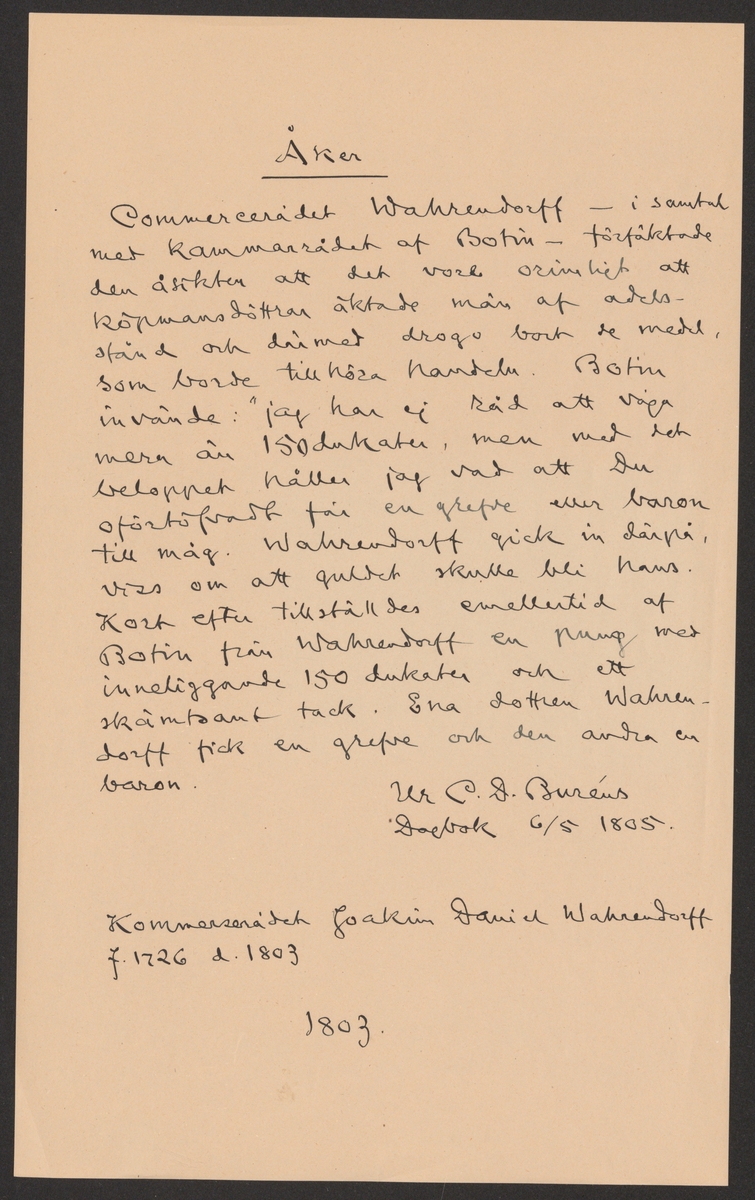 Åker
Commercerådet Wahrendorff – i samtal
med kammarrådet af Botin – förfäktade
den åsikten att det vore orimligt att
köpmansdöttrar äktade män af adels-
stånd och därmed drogo bort de medel,
som borde tillhöra handeln. Botin
invände: "jag har ej råd att våga
mera än 150 dukater, men med det
beloppet håller jag vad att Du
oförtöfvadt får en grefve eller baron
till måg. Wahrendorff gick in därpå,
viss om att guldet skulle bli hans.
Kort efter tillställdes emellertid af
Botin från Wahrendorff en pung med
inneliggande 150 dukater och ett
skämtsamt tack. Ena dottren Wahren-
dorff fick en grefve och den andra en
baron.
Ur C. D. Buréns
Dagbok 6/5 1805.
Kommerserådet Joakim Daniel Wahrendorff
f. 1726 d. 1803
1803.